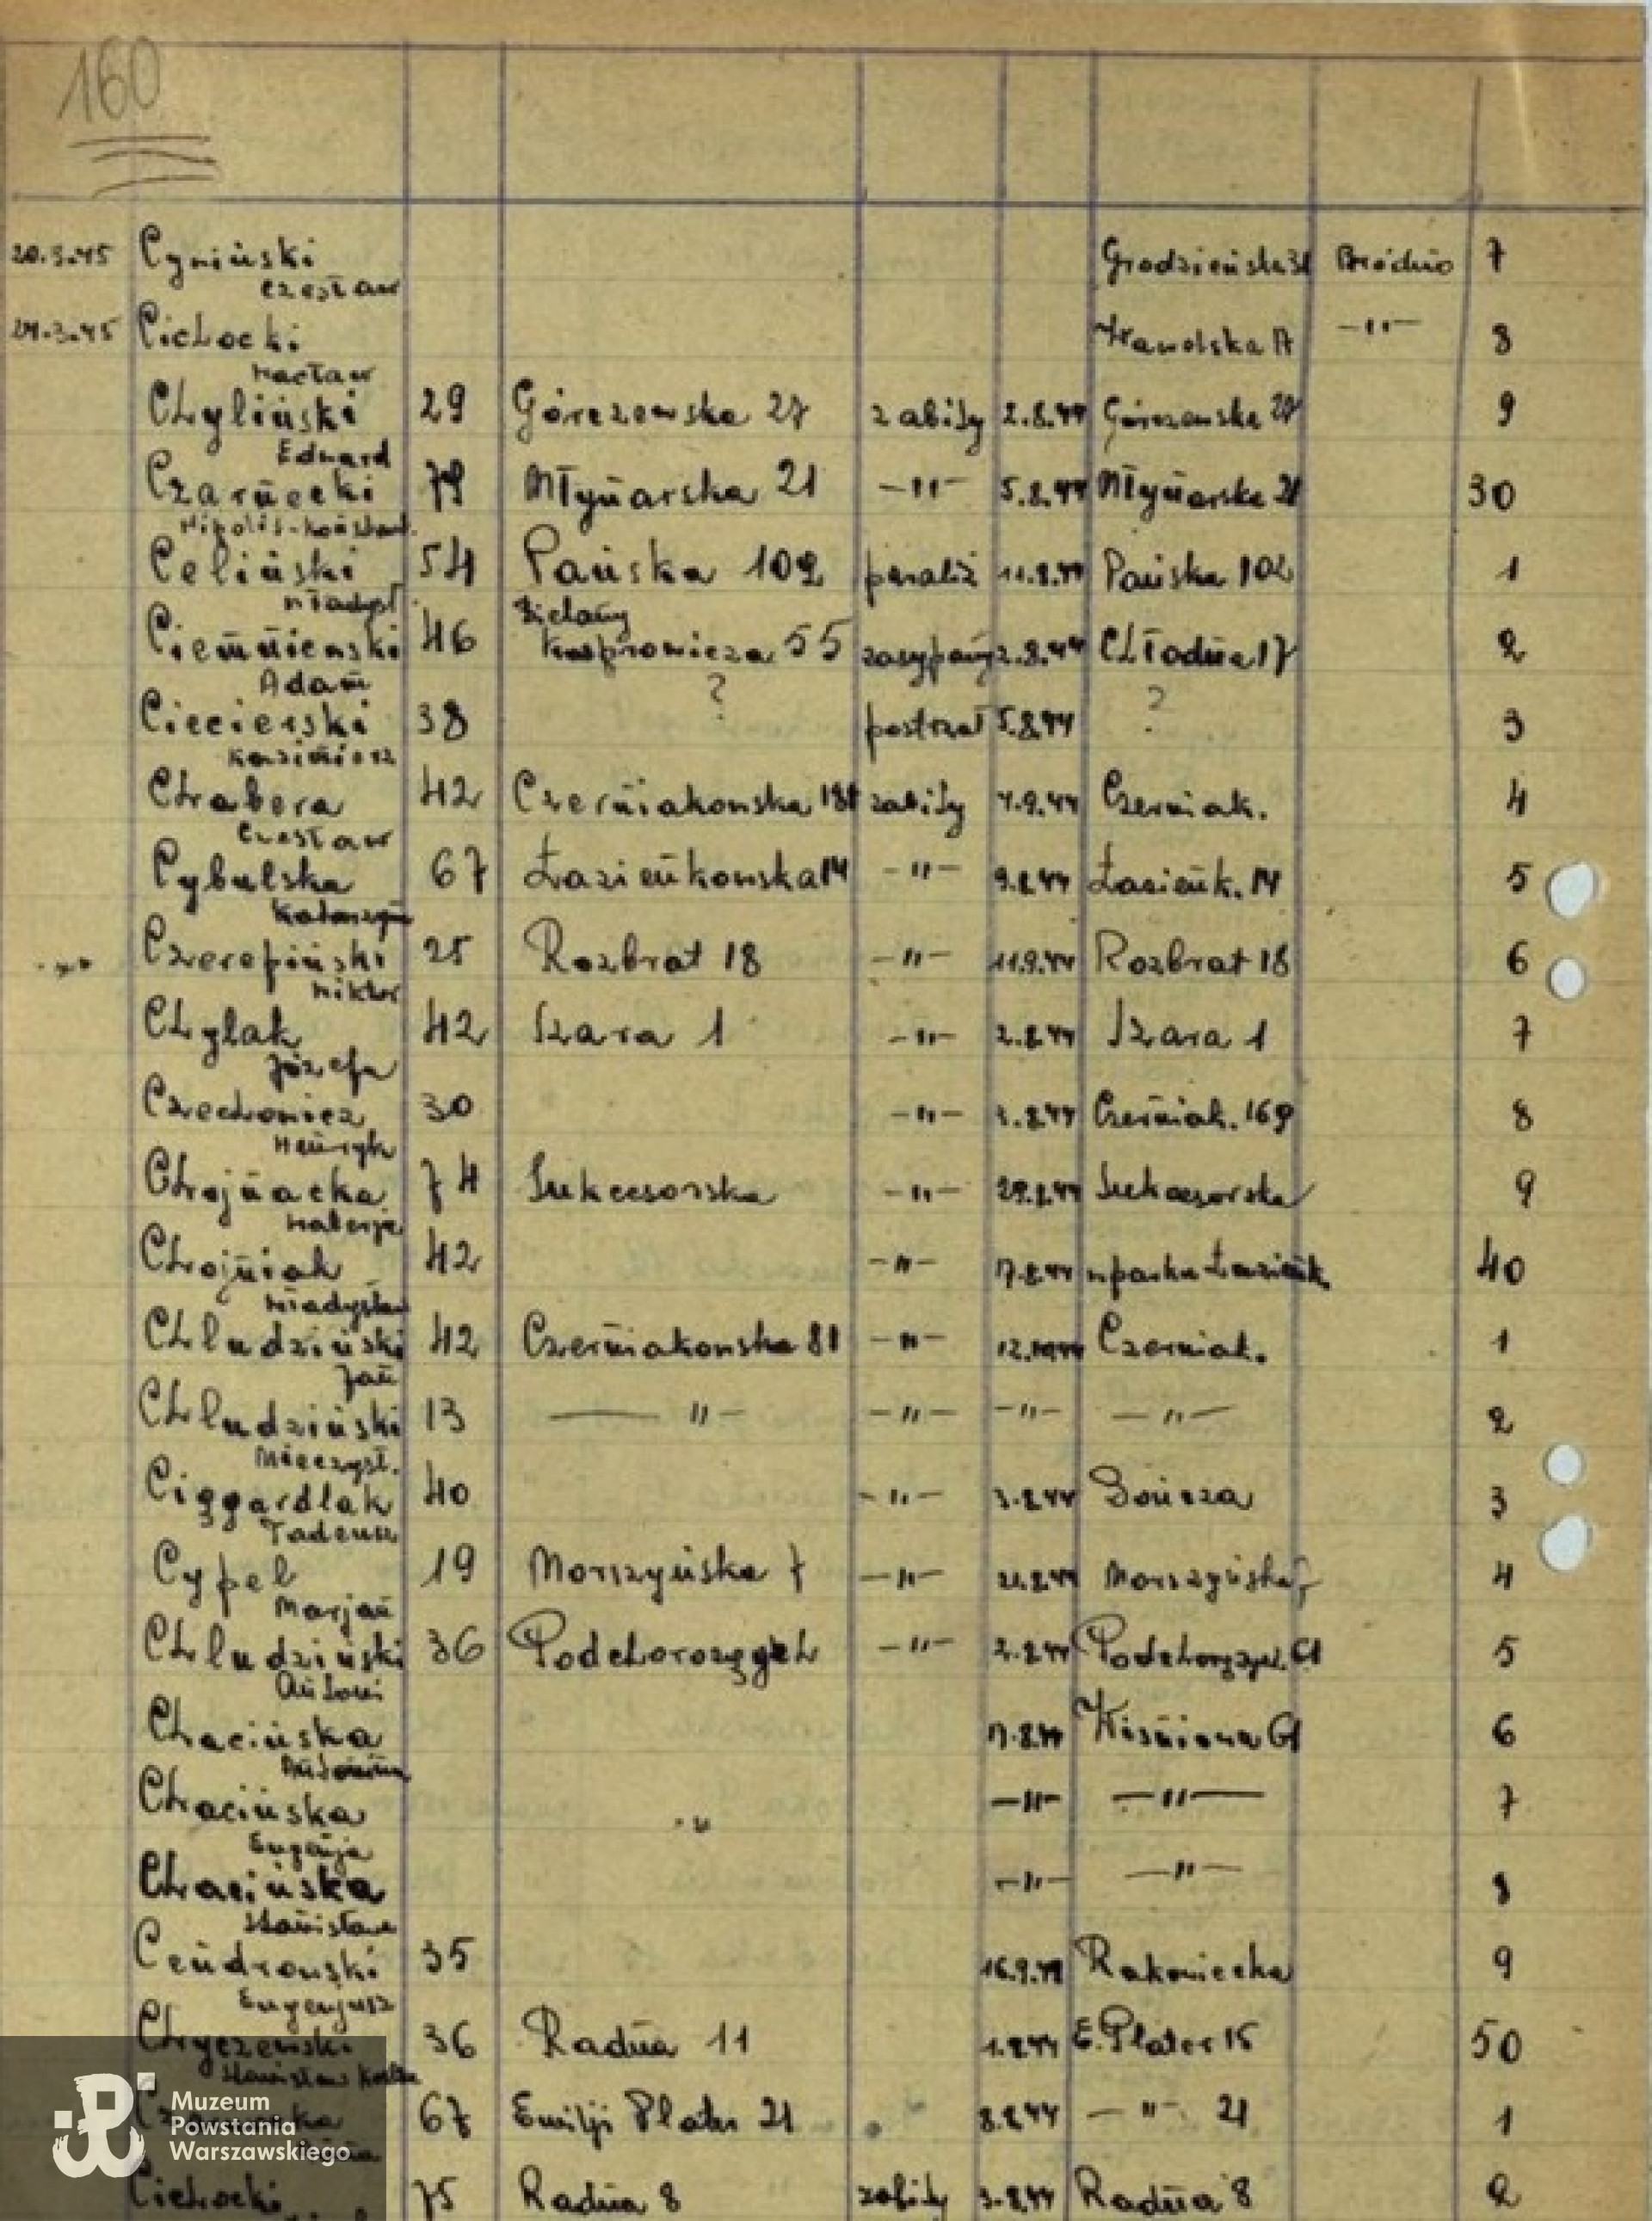 160
20.3.45 Cyniński Grodzieńska 31 Bródno 7
Czesław
24.3.45 Cichocki Wawelska 17 -"- 8
Wacław
Chyliński 29 Górczewska 27 zabity 2.8.44 Górczewska 27 9
Edward
Czarnecki 79 Młynarska 21 -"- 5.8.44 Młynarska 21 30
Celiński 54 Pańska 102 paraliż 11.8.44 Pańska 102 1
Władysł.
Bielany
Ciemniewski 46 Kasprowicza 55 zasypany 2.8.44 Chłodna 17 2
Adam
Ciecierski 38 ? postrzał 5.8.44 ? 3
Kazimierz
Chabera 42 Czerniakowska 181 zabity 7.9.44 Czerniak. 4
Czesław
Cybulska 67 Łazienkowska 14 -"- 9.8.44 Łazienk. 14 5
Katarzyna
Czerepiński 25 Rozbrat 18 -"- 11.9.44 Rozbrat 18 6
Wiktor
Chylak 42 Szara 1 -"- 2.8.44 Szara 1 7
Józefa
Czechowicz 30 -"- 3.8.44 Czerniak. 169 8
Henryk
Chojnacka 74 Sukcesorska -"- 29.8.44 Sukcesorska 9
Walerja
Chojniak 42 -"- 17.8.44 w parku Łazienk. 40
Władysław
Chludziński 42 Czerniakowska 81 -"- Czerniak. 1
Jan
Chludziński 13 -"- -"- -"- -"- 2
Mieczysł.
Ciągardlak 40 -"- 3.8.44 Bończa 3
Tadeusz
Cypel 19 Morszyńska 7 -"- 21.8.44 Morszyńska 7 4
Marjan
Chludziński 36 Podchorążych -"- 2.8.44 Podchorążych 61 5
Antoni
Chacińska 17.8.44 Wiśniowa 61 6
Antonina
Chacińska " -"- -"- 7
Eugenja
Chacińska -"- -"- 8
Stanisława
Cendrowski 35 16.9.44 Rakowiecka 9
Eugenjusz
Chyczewski 36 Radna 11 1.8.44 E. Plater 15 50
Stanisław Kostka
67 Emilji Plater 21 8.8.44 -"- 21 1
Cichocki 75 Radna 8 zabity 3.8.44 Radna 8 2
Muzeum
Powstania
Warszawskiego